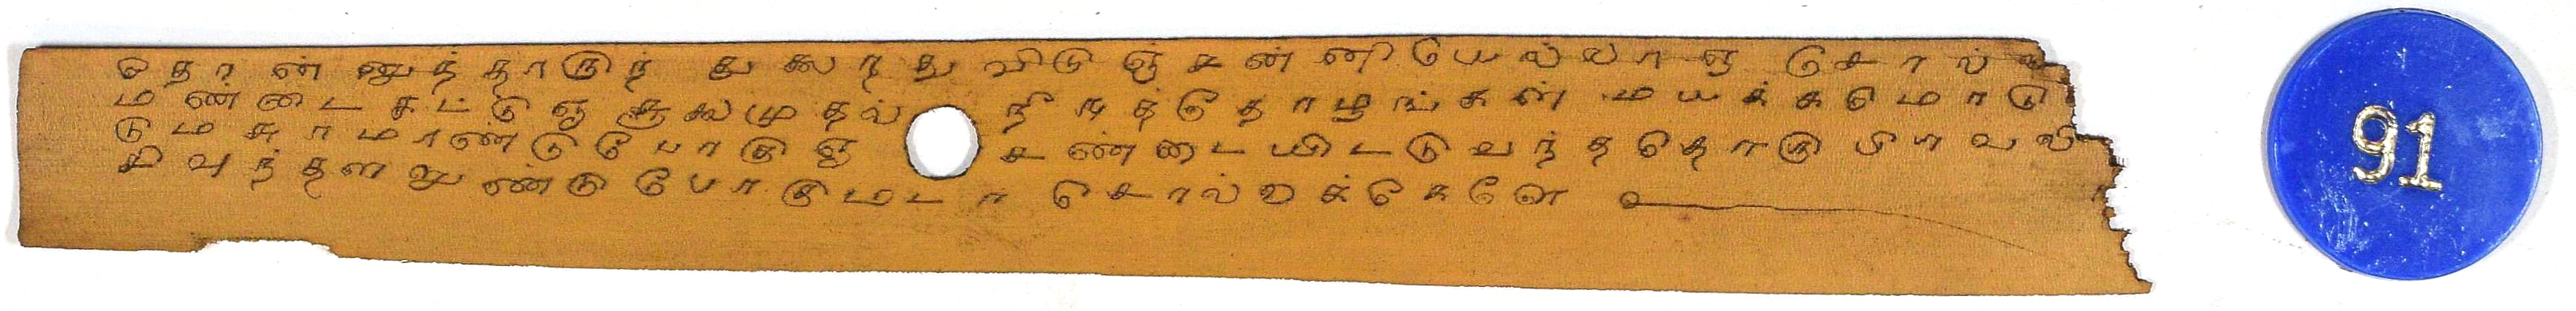 தொண்ணூத்தாருந் துலைந்துவிடுஞ் சன்னியெல்லாஞ் சொல்
மண்டைகட்டுஞ் சூலைமுதல் நீடித்தோழங்கள் மயக்கமொடு
டுமகாமாண்டுபோகுஞ் சண்டையிட்டு வந்ததொகு
சிவந்தனலுண்டு போகுமடா சொல்லக்கேளே
91